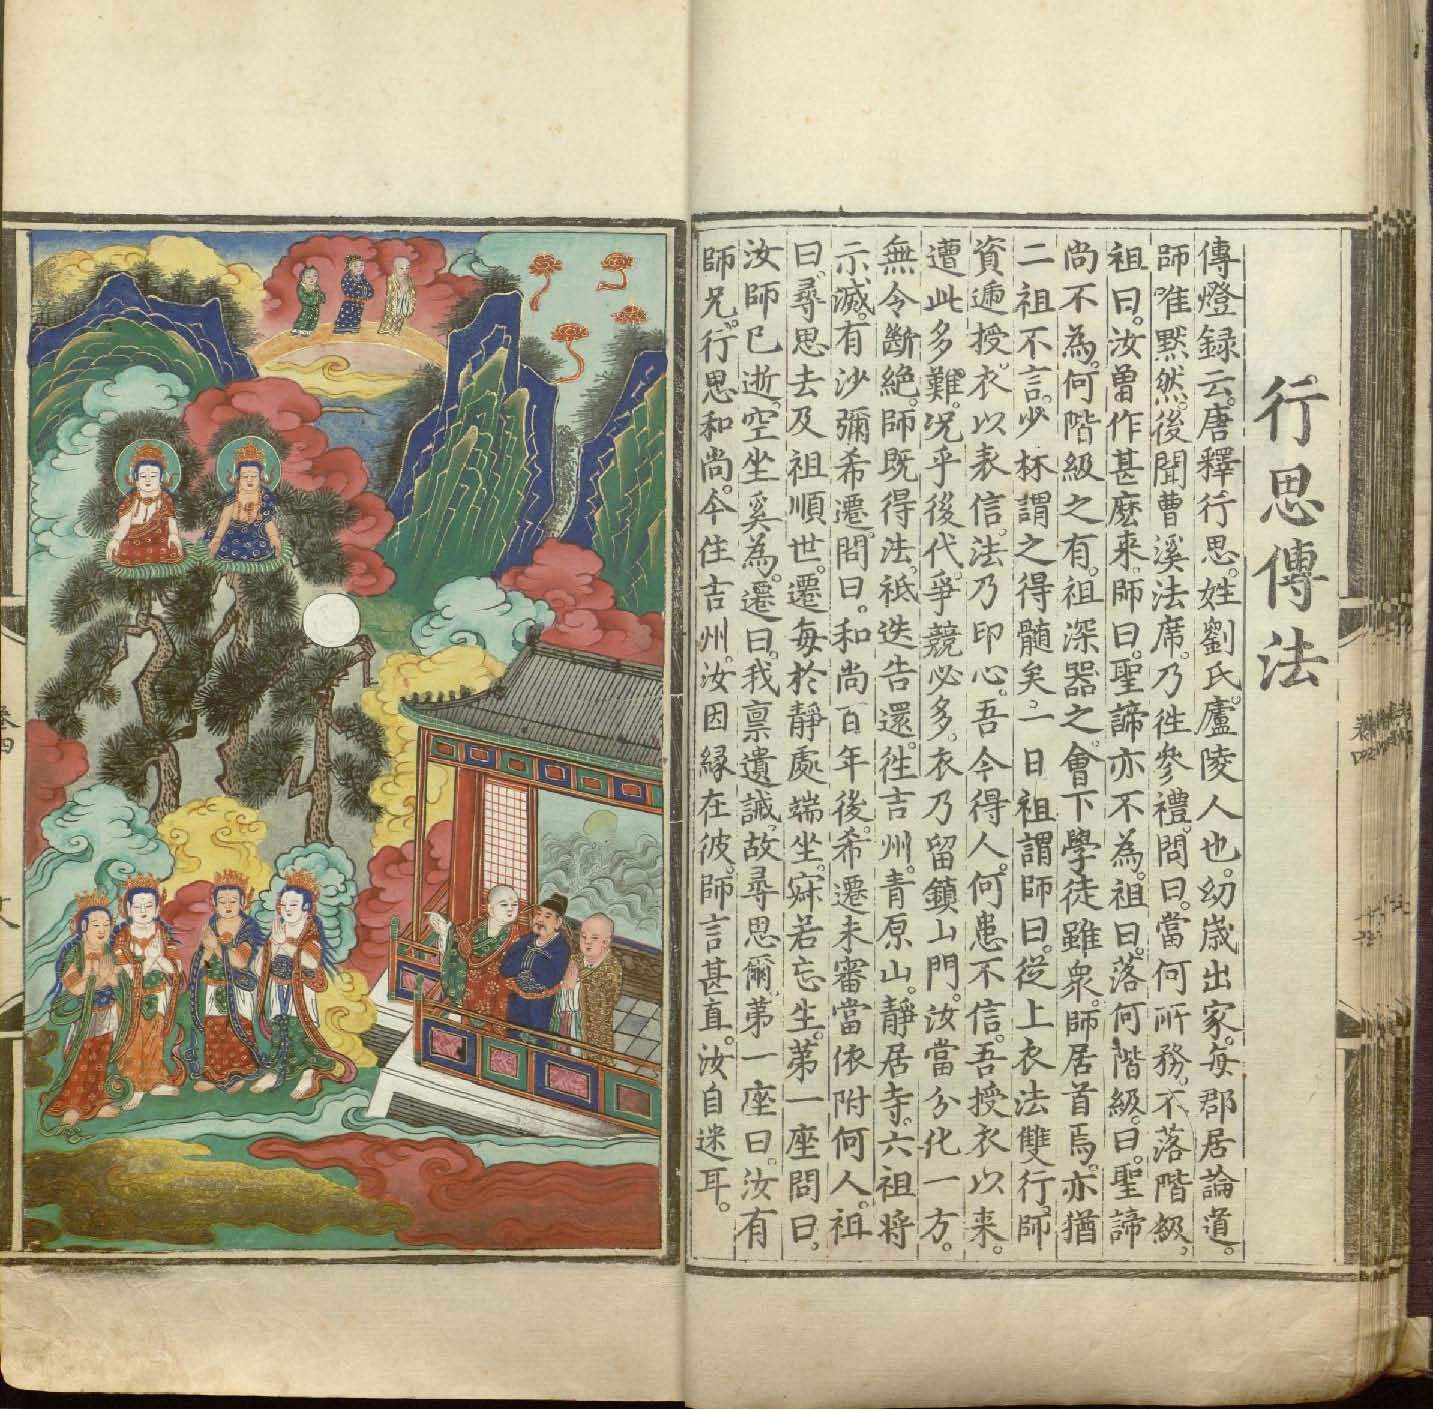 行思傳法
傳燈録云。唐釋行思。姓劉氏。廬陵人也。幼歲出家。每郡居論道。
師唯黙然。後聞曹溪法席。乃徃參禮。問曰。當何所務。不落階級。
祖曰。汝曽作甚麽来。師曰。聖諦亦不為。祖曰。落何階級。曰。聖諦
尚不為。何階級之有。祖深器之。會下學徒雖衆。師居首焉。亦猶
二祖不言。少林謂之得髓矣。一日祖謂師曰。從上衣法雙行。師
資逓授。衣以表信。法乃印心。吾今得人。何患不信。吾授衣以来。
遭此多難。况乎後代。爭競必多。衣乃留鎮山門。汝當分化一方。
無令斷絶。師既得法。祗迭告還。徃吉州。青原山。靜居寺。六祖将
示滅。有沙彌希遷。問曰。和尚百年後。希遷未審當依附何人。祖
曰。尋思去及祖順世。遷每於靜處端坐。寂若忘生。苐一座問曰。
汝師已逝。空坐奚為。遷曰。我禀遺誡。故尋思爾。苐一座曰。汝有
師兄。行思和尚。今住吉州。汝因縁在彼。師言甚直。汝自迷耳。
卷四